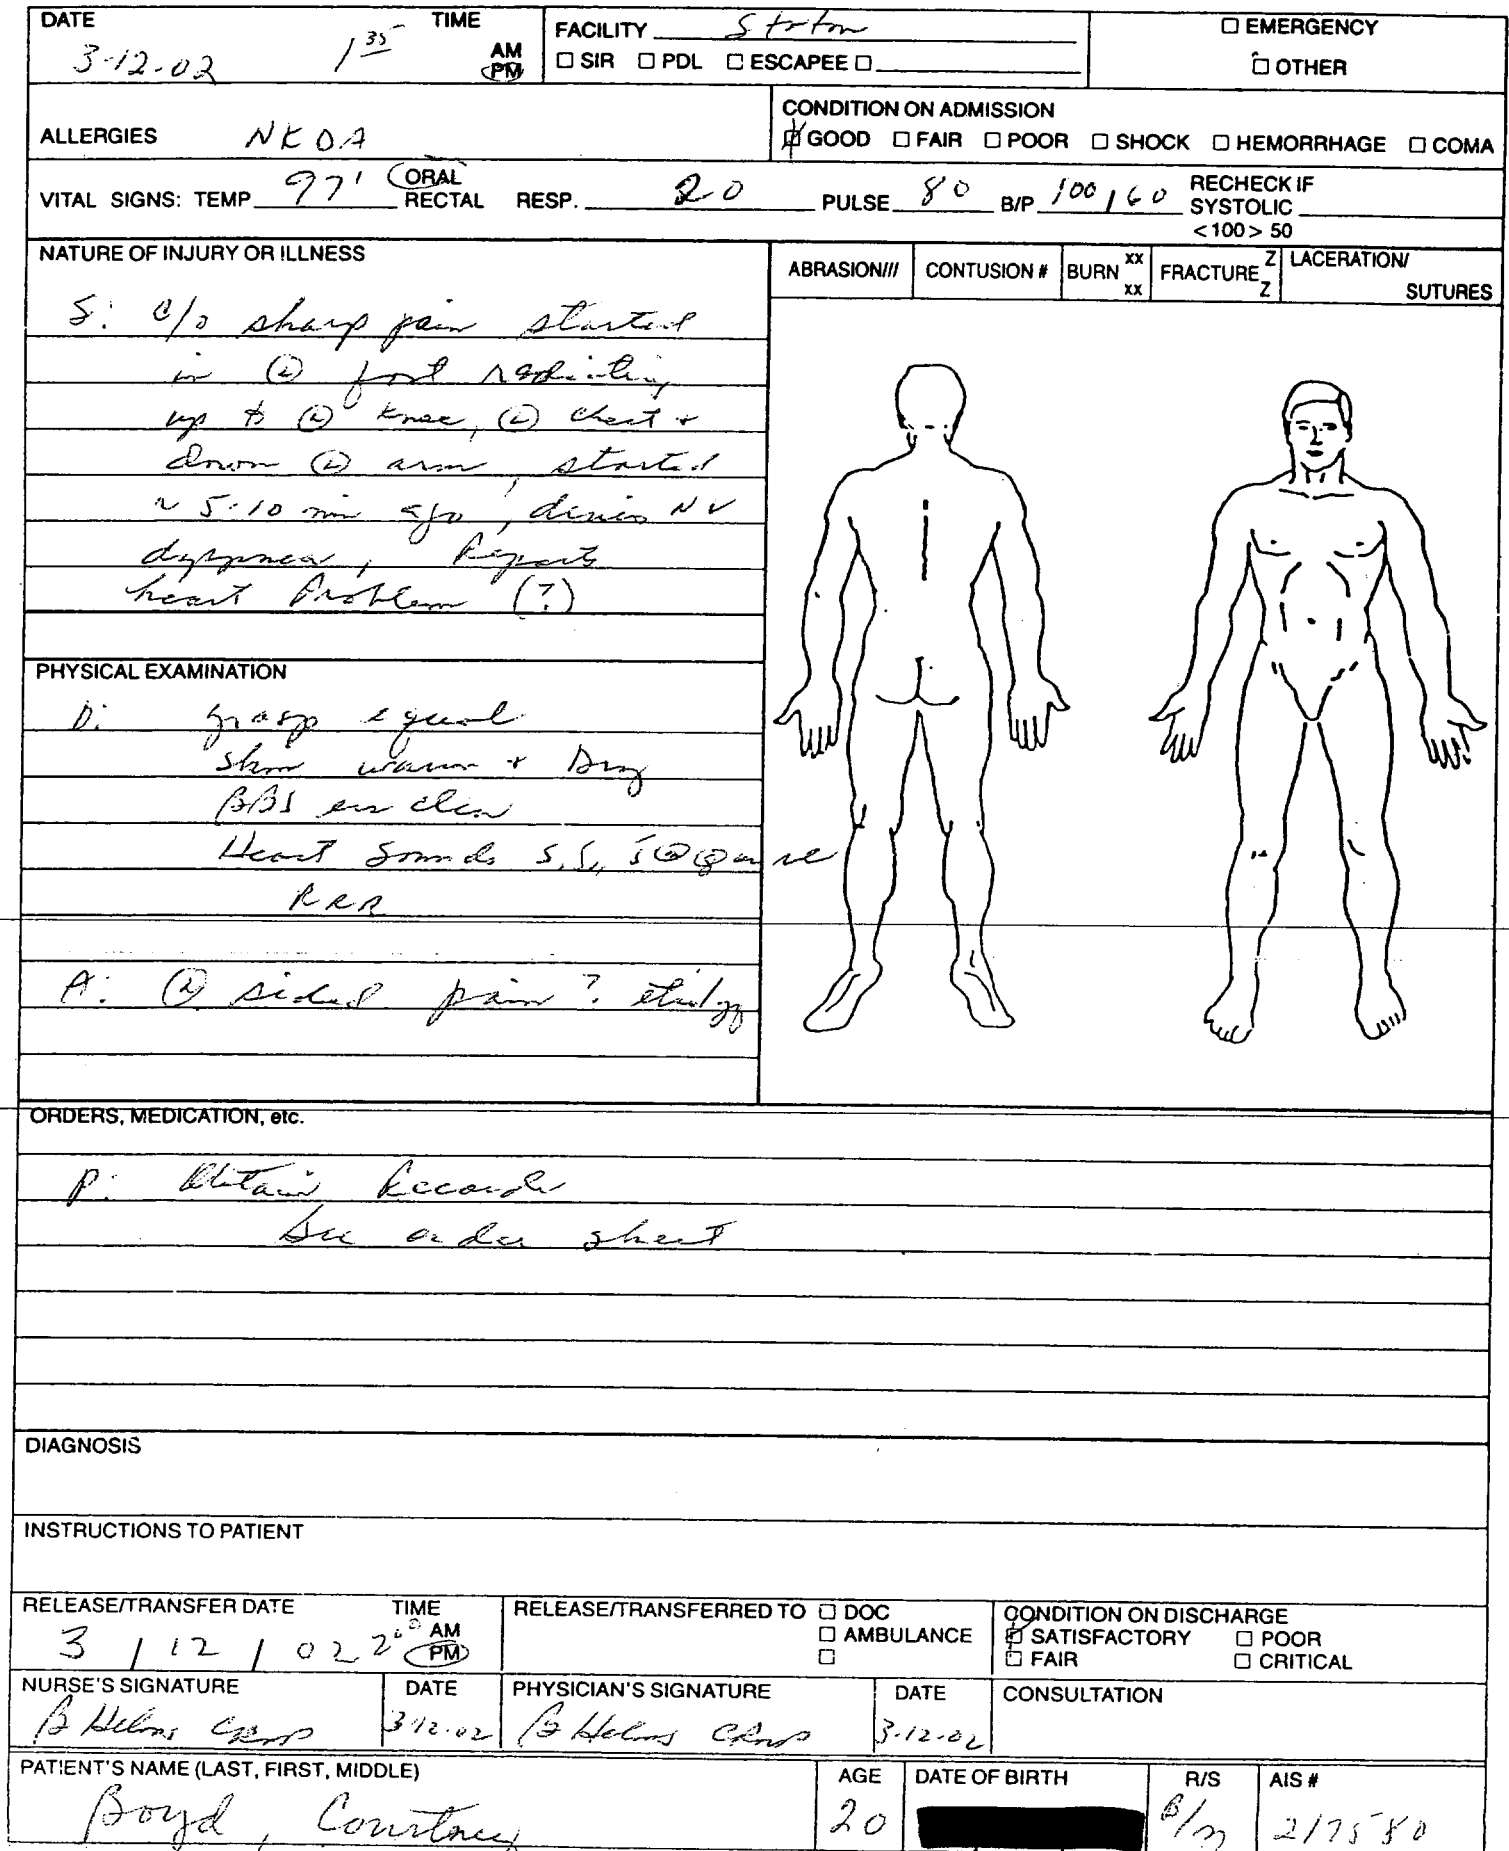 DATE TIME
3-12-02 1 35 AM PM
FACILITY
□ SIR □ PDL □ ESCAPEE □
□ EMERGENCY
□ OTHER
ALLERGIES NKDA
CONDITION ON ADMISSION
□ GOOD □ FAIR □ POOR □ SHOCK □ HEMORRHAGE □ COMA
VITAL SIGNS: TEMP 97' ORAL RECTAL RESP. 20 PULSE 80 B/P 100/60 RECHECK IF SYSTOLIC <100> 50
NATURE OF INJURY OR ILLNESS
ABRASION/// CONTUSION # BURN xx xx FRACTURE Z Z LACERATION/ SUTURES
S: c/o sharp pain started
in Ⓛ foot radiating
up to Ⓛ knee, Ⓛ chest +
down Ⓛ arm, started
~ 5-10 min ago, denies NV
dyspnea, Reports
heart Problem (?)
PHYSICAL EXAMINATION
O: grasp equal
Skin warm + Dry
BBS clear
Heart Sounds
RRR
A: Ⓛ sided pain ? etiology
ORDERS, MEDICATION, etc.
P: Obtain Records
See order sheet
DIAGNOSIS
INSTRUCTIONS TO PATIENT
RELEASE/TRANSFER DATE TIME
3 / 12 / 02 2 00 AM PM
RELEASE/TRANSFERRED TO □ DOC
□ AMBULANCE
□
CONDITION ON DISCHARGE
□ SATISFACTORY □ POOR
□ FAIR □ CRITICAL
NURSE'S SIGNATURE DATE
B Helms CRNP 3-12-02
PHYSICIAN'S SIGNATURE DATE
B Helms CRNP 3-12-02
CONSULTATION
PATIENT'S NAME (LAST, FIRST, MIDDLE)
Boyd, Courtney
AGE
20
DATE OF BIRTH
R/S
B/m
AIS #
217580